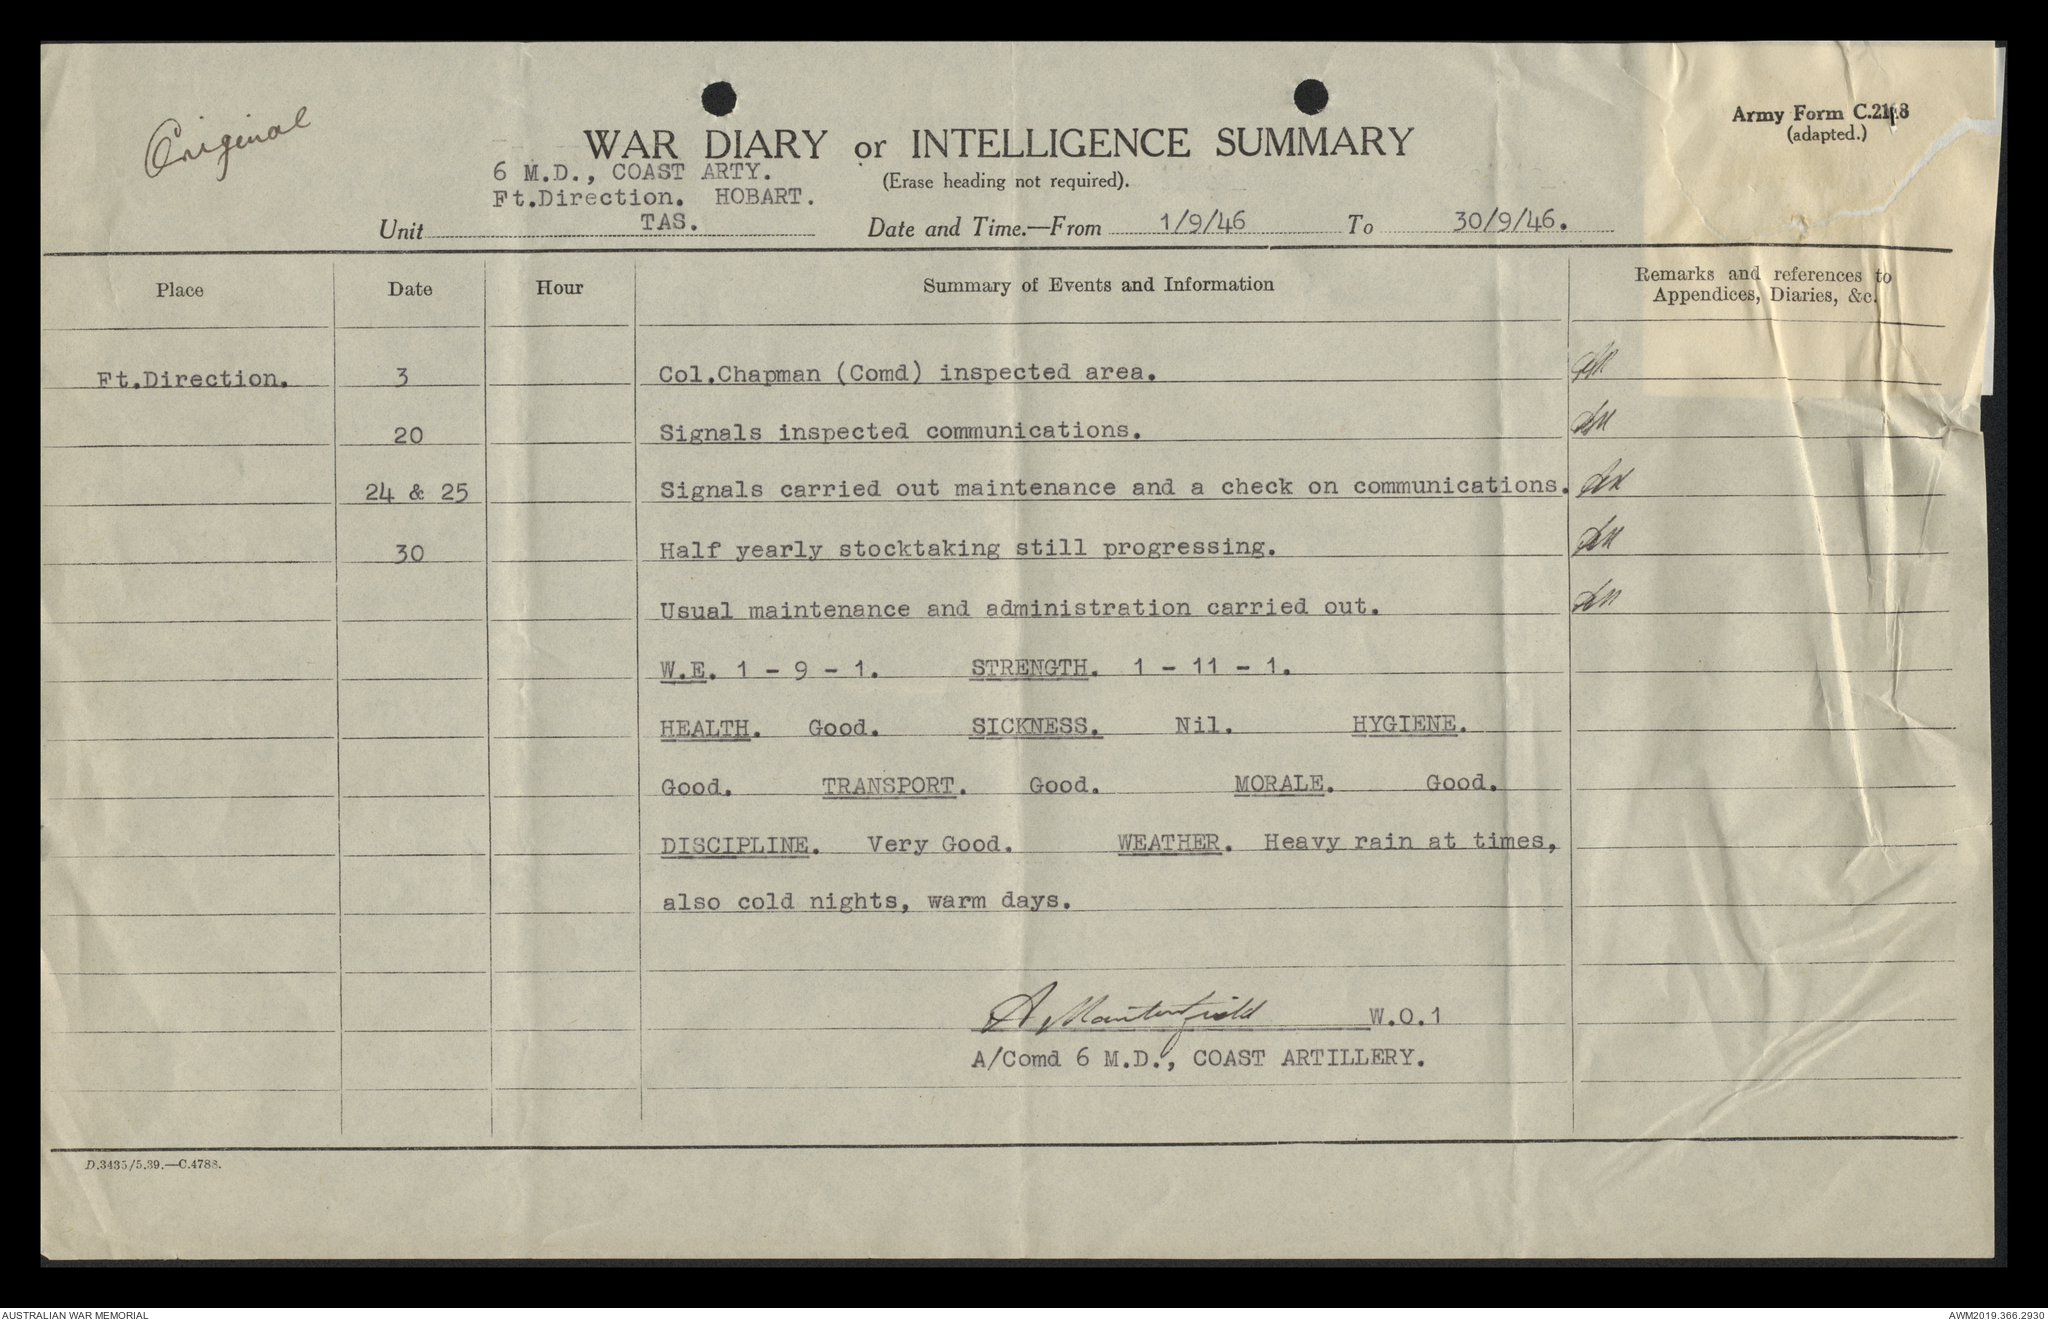 Original
Army Form C.2118
(adapted.)
WAR DIARY or INTELLIGENCE SUMMARY
(Erase heading not required).
6 M.D., COAST ARTY.
Ft.Direction. HOBART.
Unit TAS. Date and Time.—From 1/9/46 To 30/9/46.
Place Date Hour Summary of Events and Information Remarks and references to
Appendices, Diaries, &c.
Ft.Direction. 3 Col.Chapman (Comd) inspected area.
20 Signals inspected communications.
24 & 25 Signals carried out maintenance and a check on communications.
30 Half yearly stocktaking still progressing.
Usual maintenance and administration carried out.
W.E. 1 - 9 - 1. STRENGTH. 1 - 11 - 1.
HEALTH. Good. SICKNESS. Nil. HYGIENE.
Good. TRANSPORT. Good. MORALE. Good.
DISCIPLINE. Very Good. WEATHER. Heavy rain at times,
also cold nights, warm days.
W.O.1
A/Comd 6 M.D., COAST ARTILLERY.
D.3435/5.39.—C.4788.
AUSTRALIAN WAR MEMORIAL AWM2019.366.2930